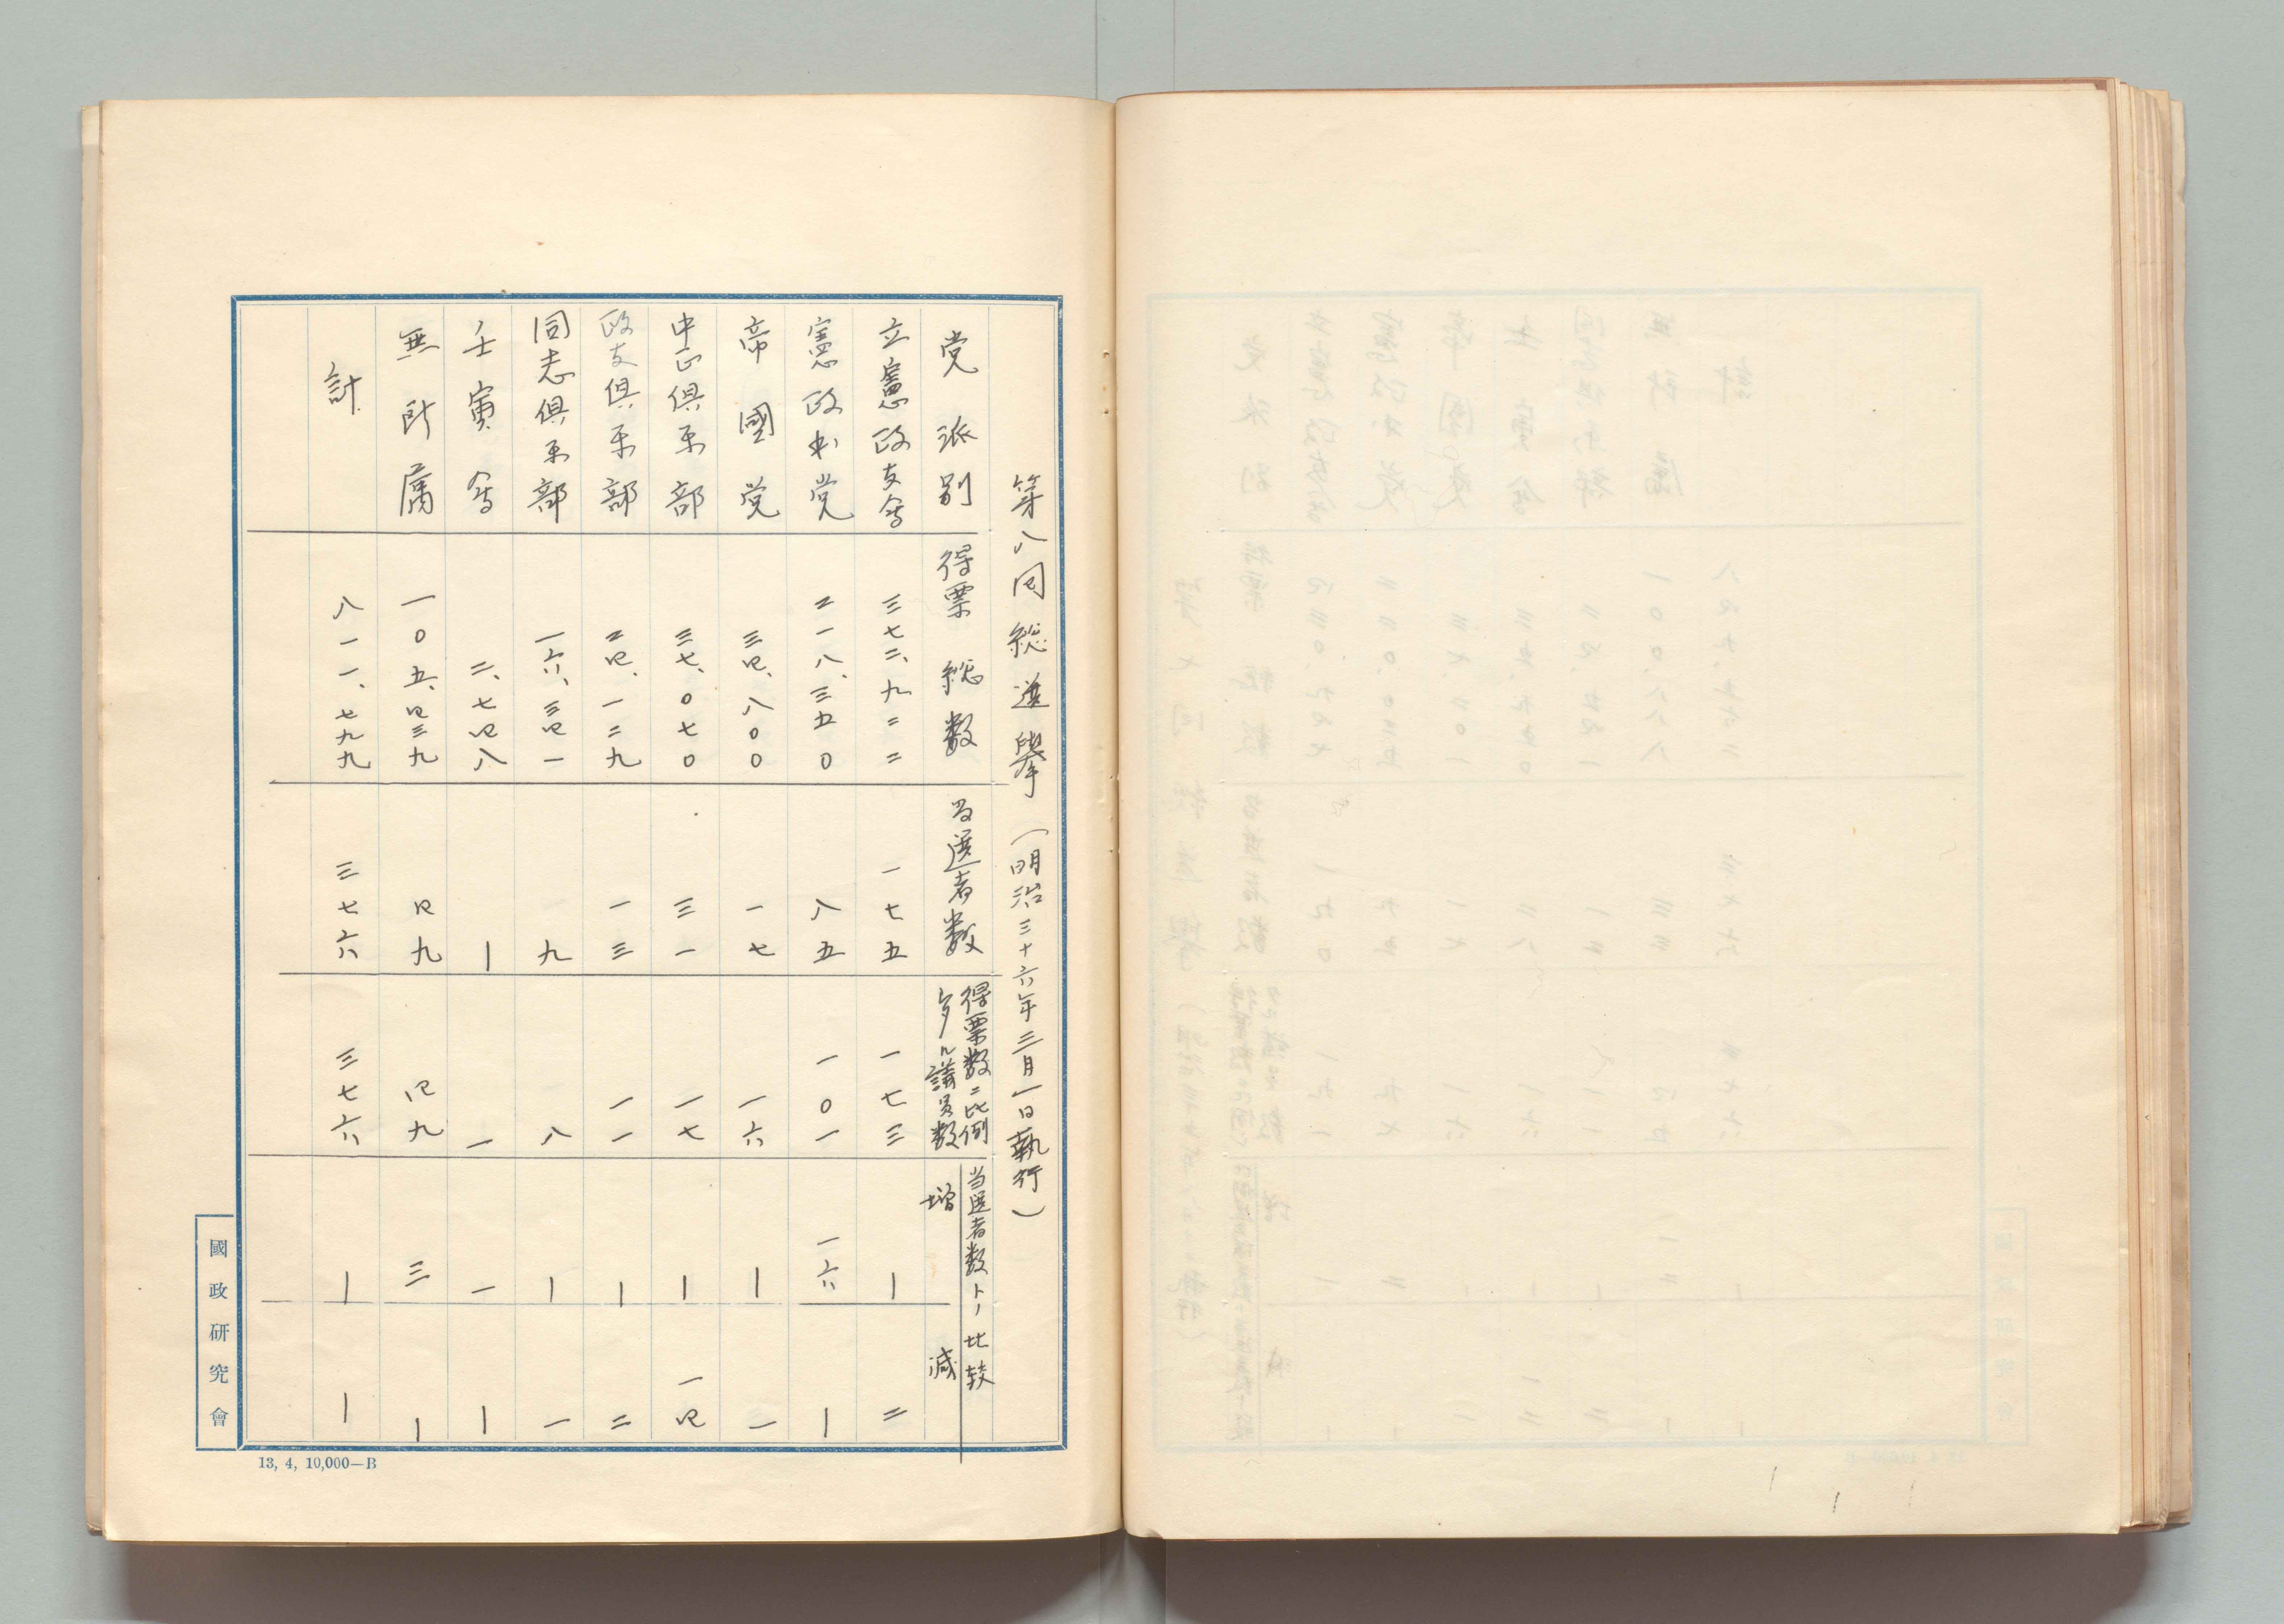 第八回総選挙（明治三十六年三月一日執行）
党派別 得票総数 当選者数 得票数ニ比例シタル議員数 当選者数トノ比較 増 減
立憲政友会 三七二、九二二 一七五 一七三 ｜ 二
憲政本党 二一八、三五〇 八五 一〇一 一六 ｜
帝國党 三四、八〇〇 一七 一六 ｜ 一
中正倶楽部 三七、〇七〇 三一 一七 ｜ 一四
政友倶楽部 二四、一二九 一三 一一 ｜ 二
同志倶楽部 一六、三四一 九 八 ｜ 一
壬寅会 二、七四八 ｜ 一 一 ｜
無所属 一〇五、四三九 四九 四九 三 ｜
計 八一一、七九九 三七六 三七六 ｜ ｜
國政研究會
13, 4, 10,000—B